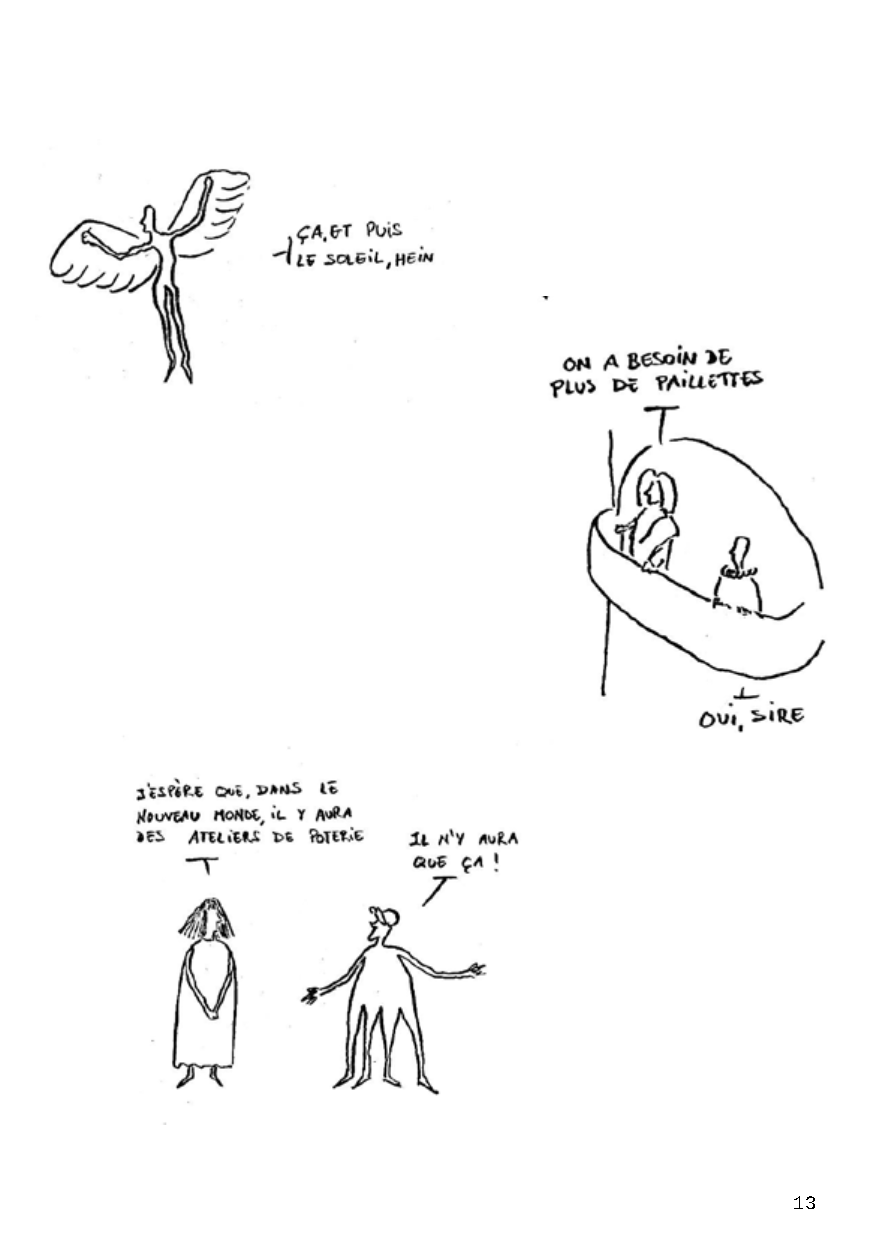 ÇA, ET PUIS
LE SOLEIL, HEIN
ON A BESOIN DE
PLUS DE PAILLETTES
OUI, SIRE
J'ESPÈRE QUE, DANS LE
NOUVEAU MONDE, IL Y AURA
DES ATELIERS DE POTERIE
IL N'Y AURA
QUE ÇA !
13